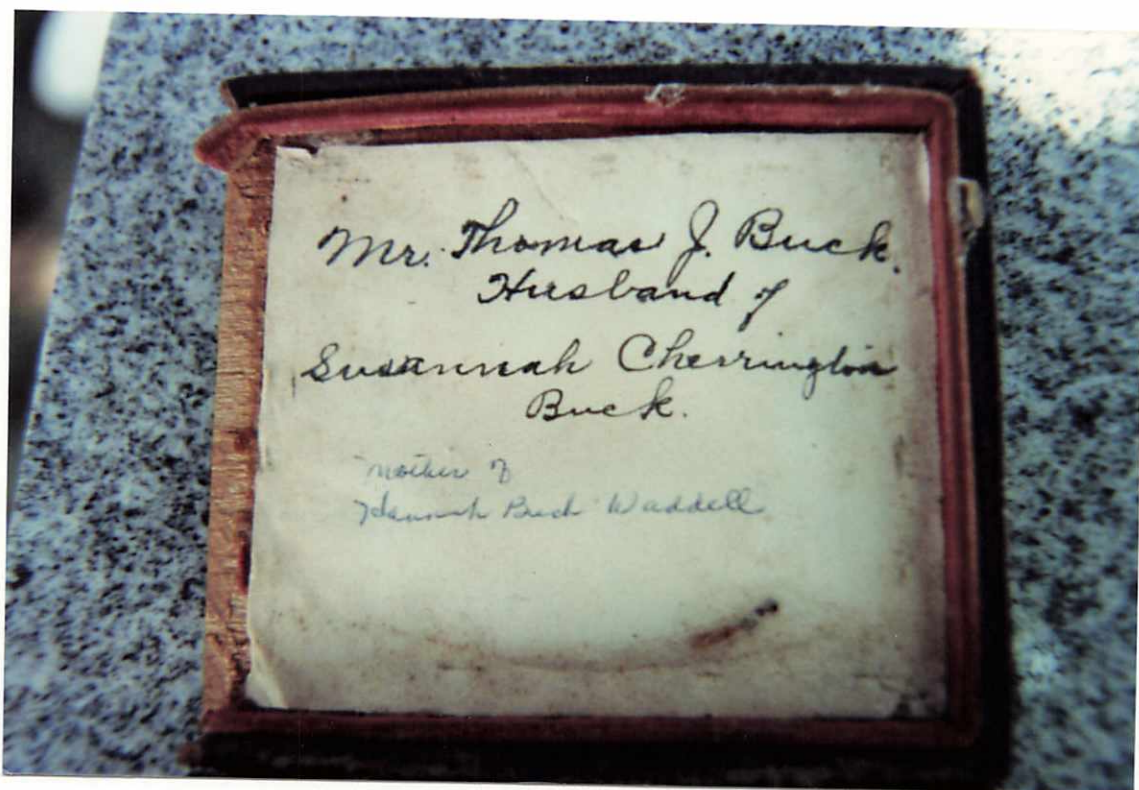 Mr. Thomas J. Buck.
Husband of
Susannah Cherrington
Buck.
Mother of
Hannah Buck Waddell